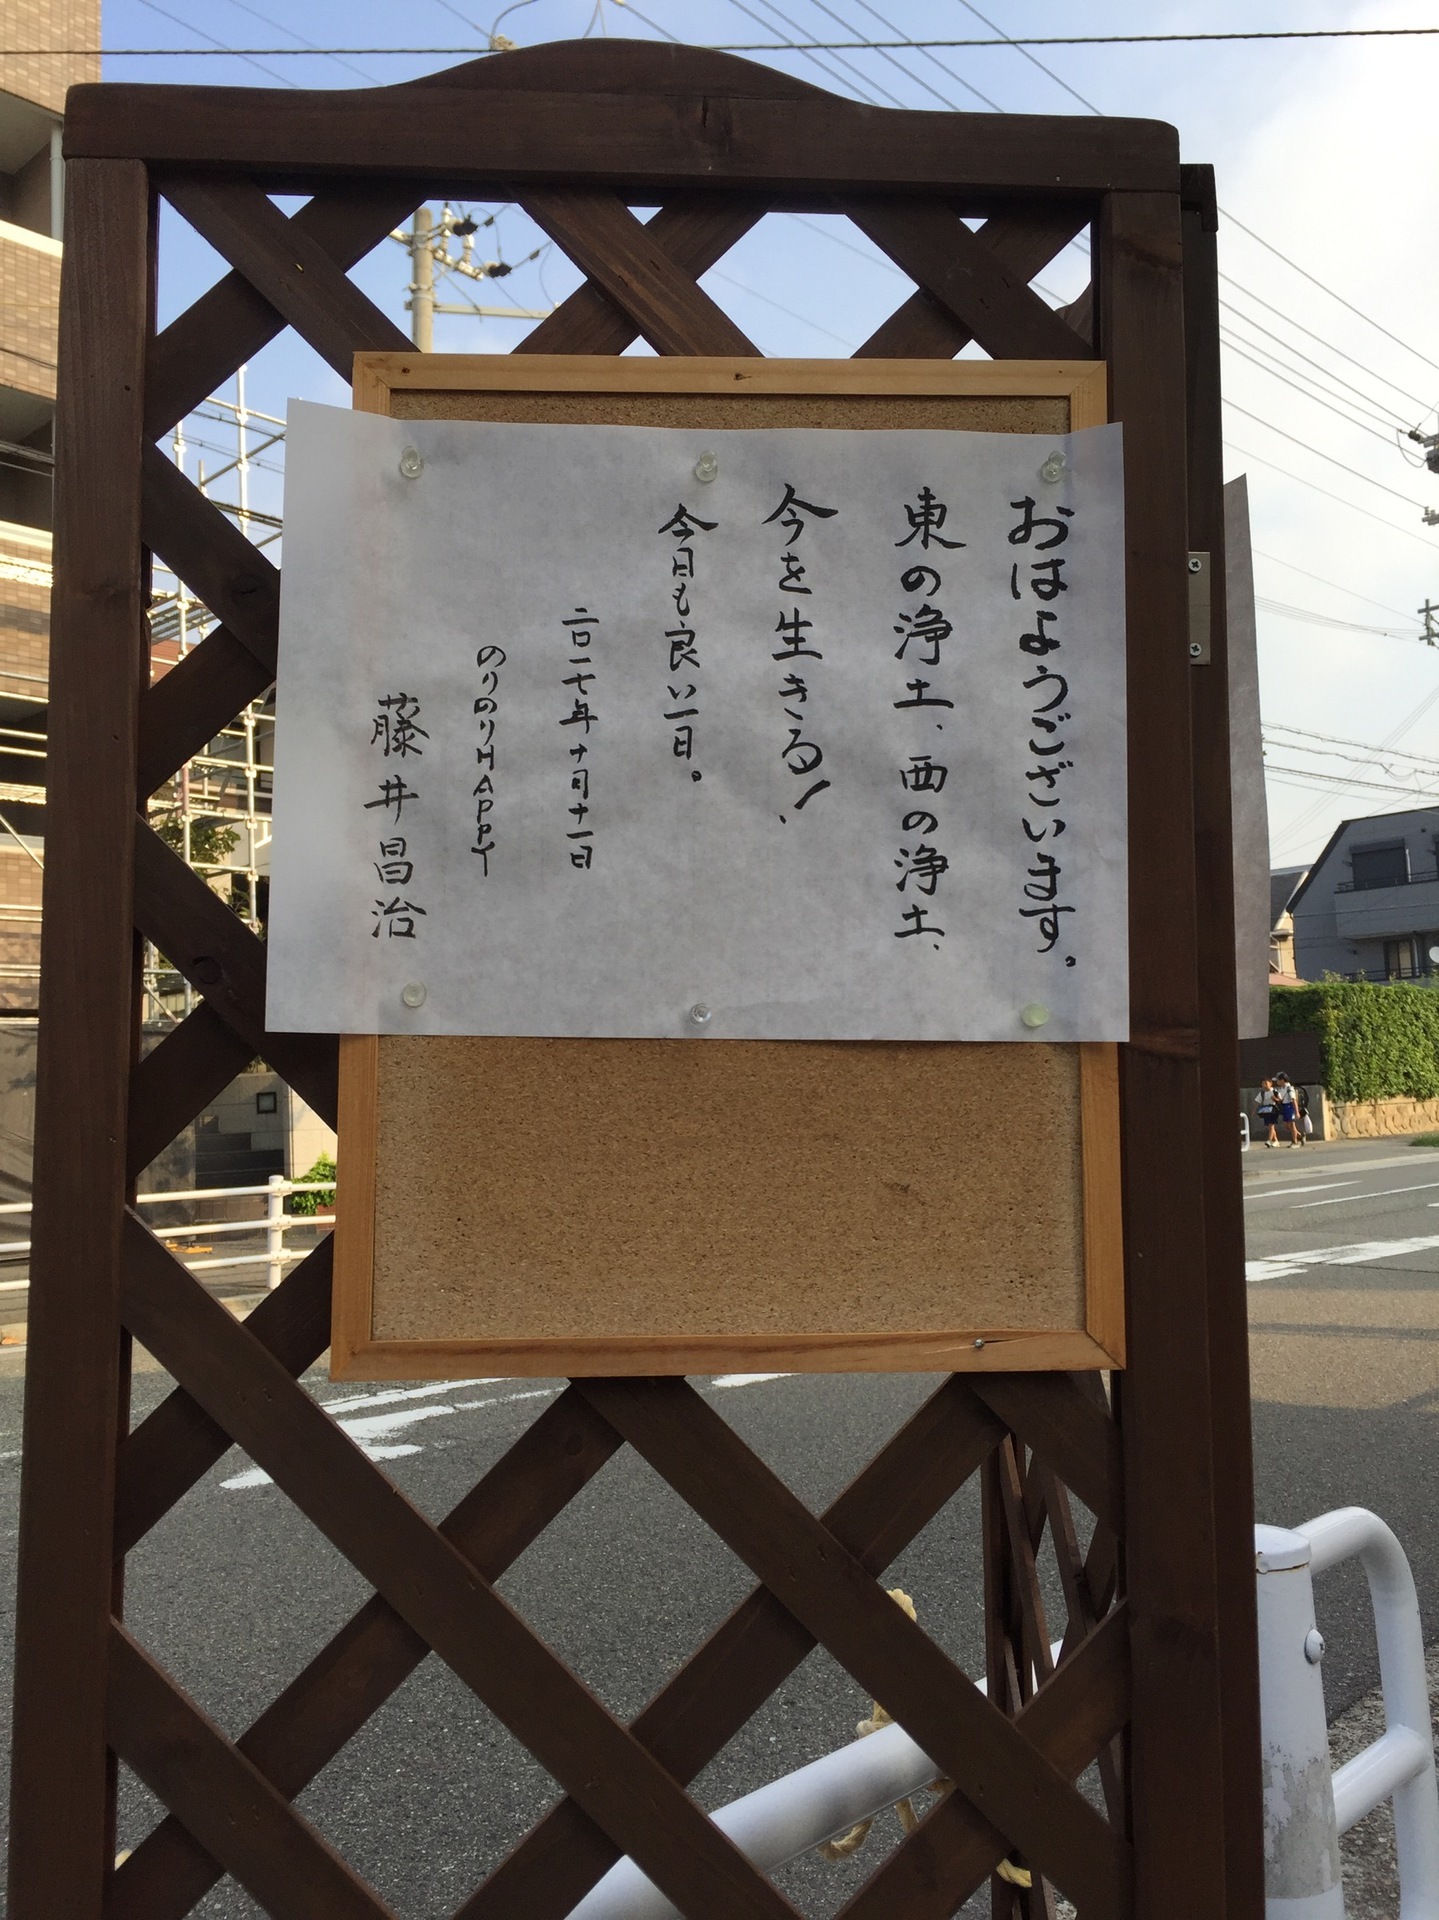 おはようございます。
東の浄土、西の浄土、
今を生きる!
今日も良い一日。
二〇一七年十月十一日
のりのりHAPPY
藤井昌治